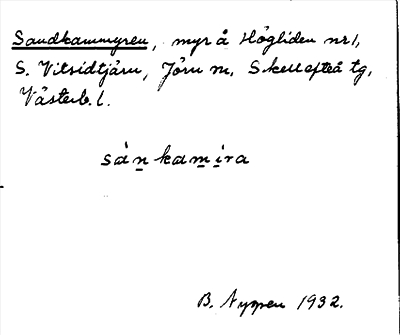 Sandkammyren, myr å Högliden nr 1,
S. Vitsidtjärn, Jörn sn, Skellefteå tg,
Västerb. l.
sánkamira
B. Nyman 1932.